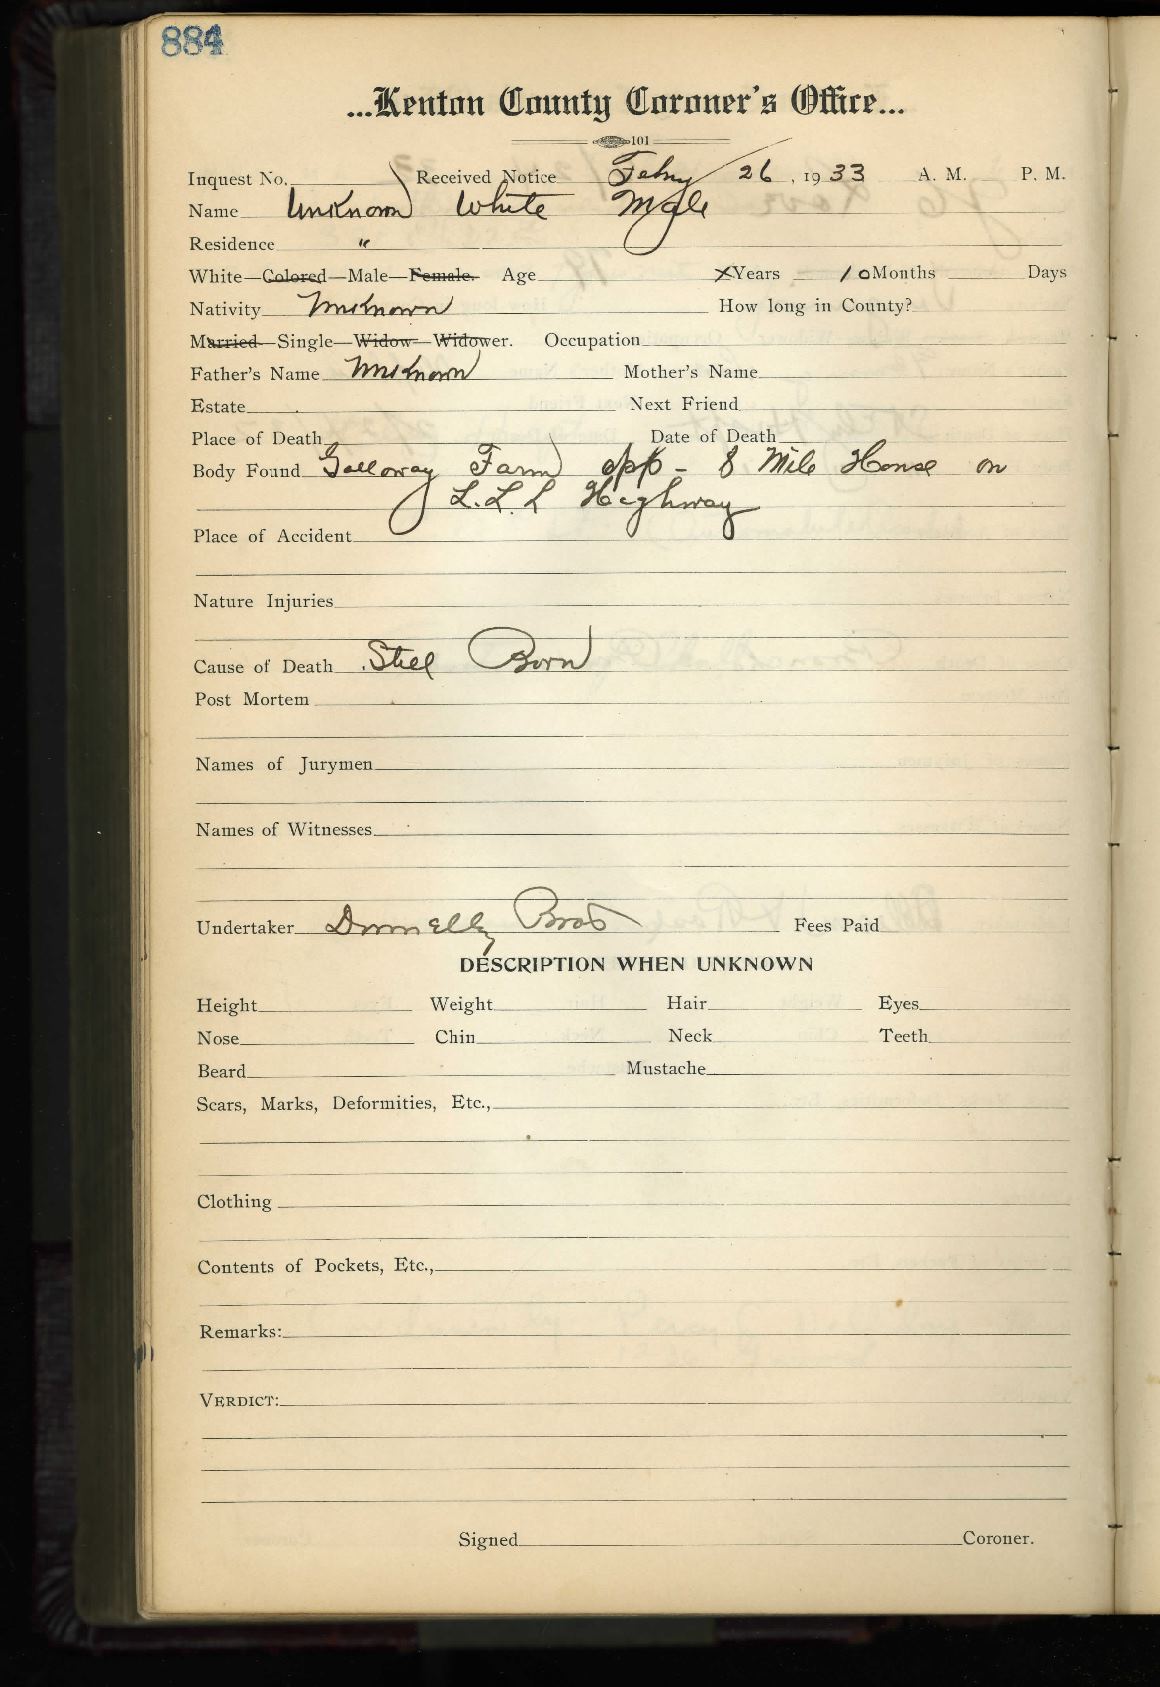 884
...Kenton County Coroner's Office...
101
Inquest No. Received Notice Febry 26, 1933 A. M. P. M.
Name Unknown White Male
Residence "
White—Colored—Male—Female. Age X Years 10 Months Days
Nativity Unknown How long in County?
Married—Single—Widow—Widower. Occupation
Father's Name Unknown Mother's Name
Estate Next Friend
Place of Death Date of Death
Body Found Galloway Farm opp - 8 Mile House on
L.L.L Highway
Place of Accident
Nature Injuries
Cause of Death Still Born
Post Mortem
Names of Jurymen
Names of Witnesses
Undertaker Donnelly Bros Fees Paid
DESCRIPTION WHEN UNKNOWN
Height Weight Hair Eyes
Nose Chin Neck Teeth
Beard Mustache
Scars, Marks, Deformities, Etc.,
Clothing
Contents of Pockets, Etc.,
Remarks:
VERDICT:
Signed Coroner.